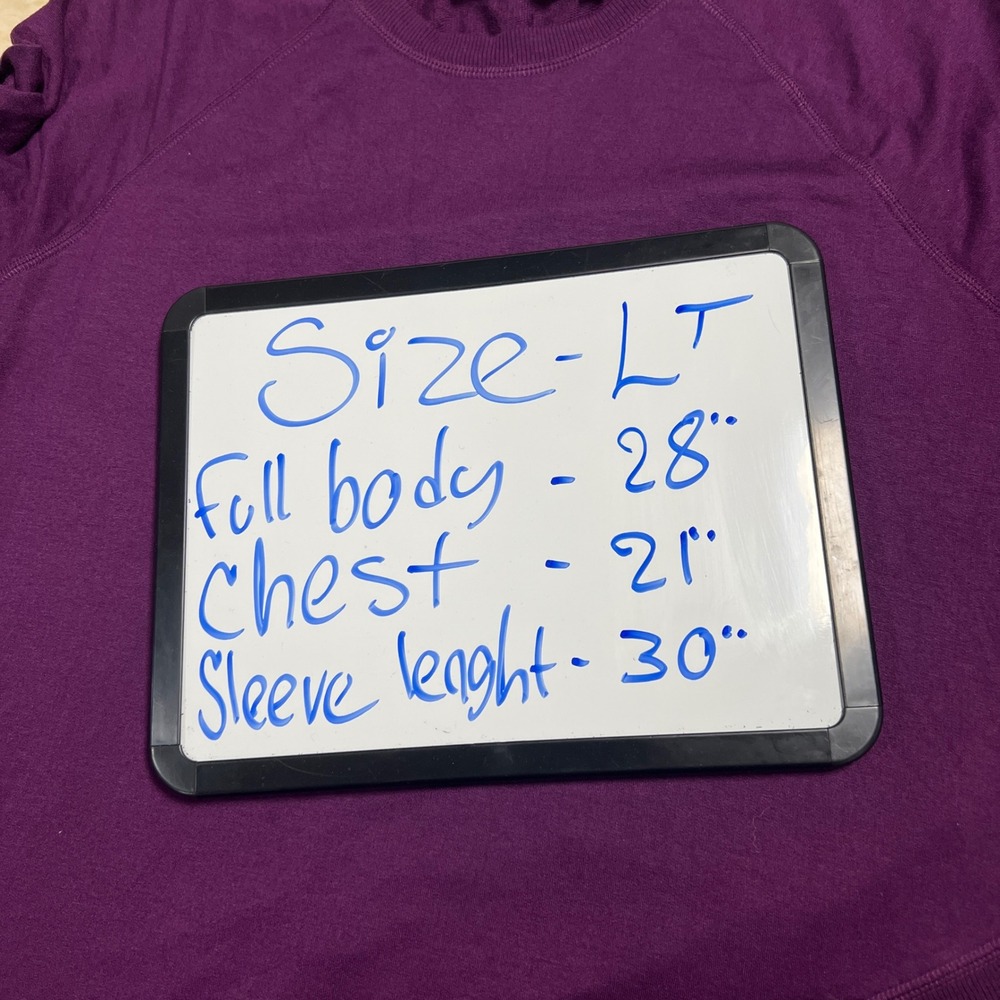 Size - LT
Full body - 28"
Chest - 21"
Sleeve lenght - 30"